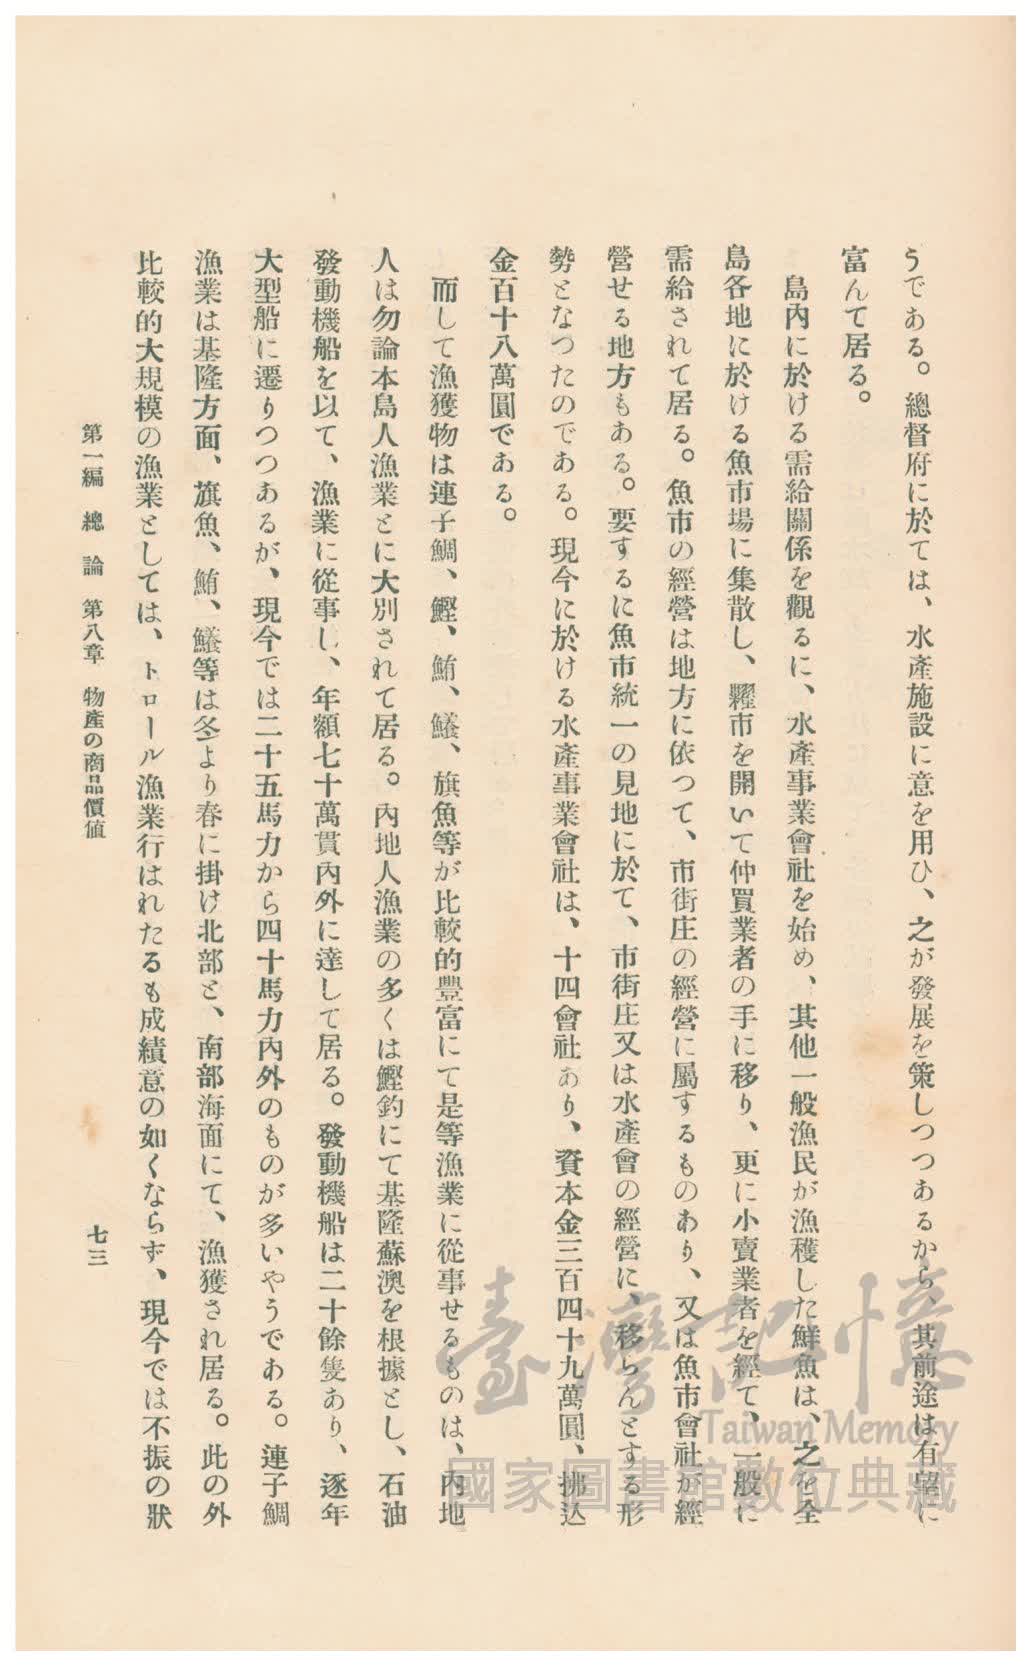 うである。總督府に於ては、水產施設に意を用ひ、之が發展を策しつつあるから、其前途は有望に
富んて居る。
島內に於ける需給關係を觀るに、水產事業會社を始め、其他一般漁民が漁穫した鮮魚は、之を全
島各地に於ける魚市場に集散し、糶市を開いて仲買業者の手に移り、更に小賣業者を經て、一般に
需給されて居る。魚市の經營は地方に依つて、市街庄の經營に屬するものあり、又は魚市會社が經
營せる地方もある。要するに魚市統一の見地に於て、市街庄又は水產會の經營に、移らんとする形
勢となつたのである。現今に於ける水產事業會社は、十四會社あり、資本金三百四十九萬圓、拂込
金百十八萬圓である。
而して漁獲物は連子鯛、鰹、鮪、鱶、旗魚等が比較的豐富にて是等漁業に從事せるものは、內地
人は勿論本島人漁業とに大別されて居る。內地人漁業の多くは鰹釣にて基隆蘇澳を根據とし、石油
發動機船を以て、漁業に從事し、年額七十萬貫內外に達して居る。發動機船は二十餘隻あり、逐年
大型船に遷りつつあるが、現今では二十五馬力から四十馬力內外のものが多いやうである。連子鯛
漁業は基隆方面、旗魚、鮪、鱶等は冬より春に掛け北部と、南部海面にて、漁獲され居る。此の外
比較的大規模の漁業としては、トロール漁業行はれたるも成績意の如くならず、現今では不振の狀
第一編 總論 第八章 物產の商品價値
七三
臺灣記憶
Taiwan Memory
國家圖書館數位典藏